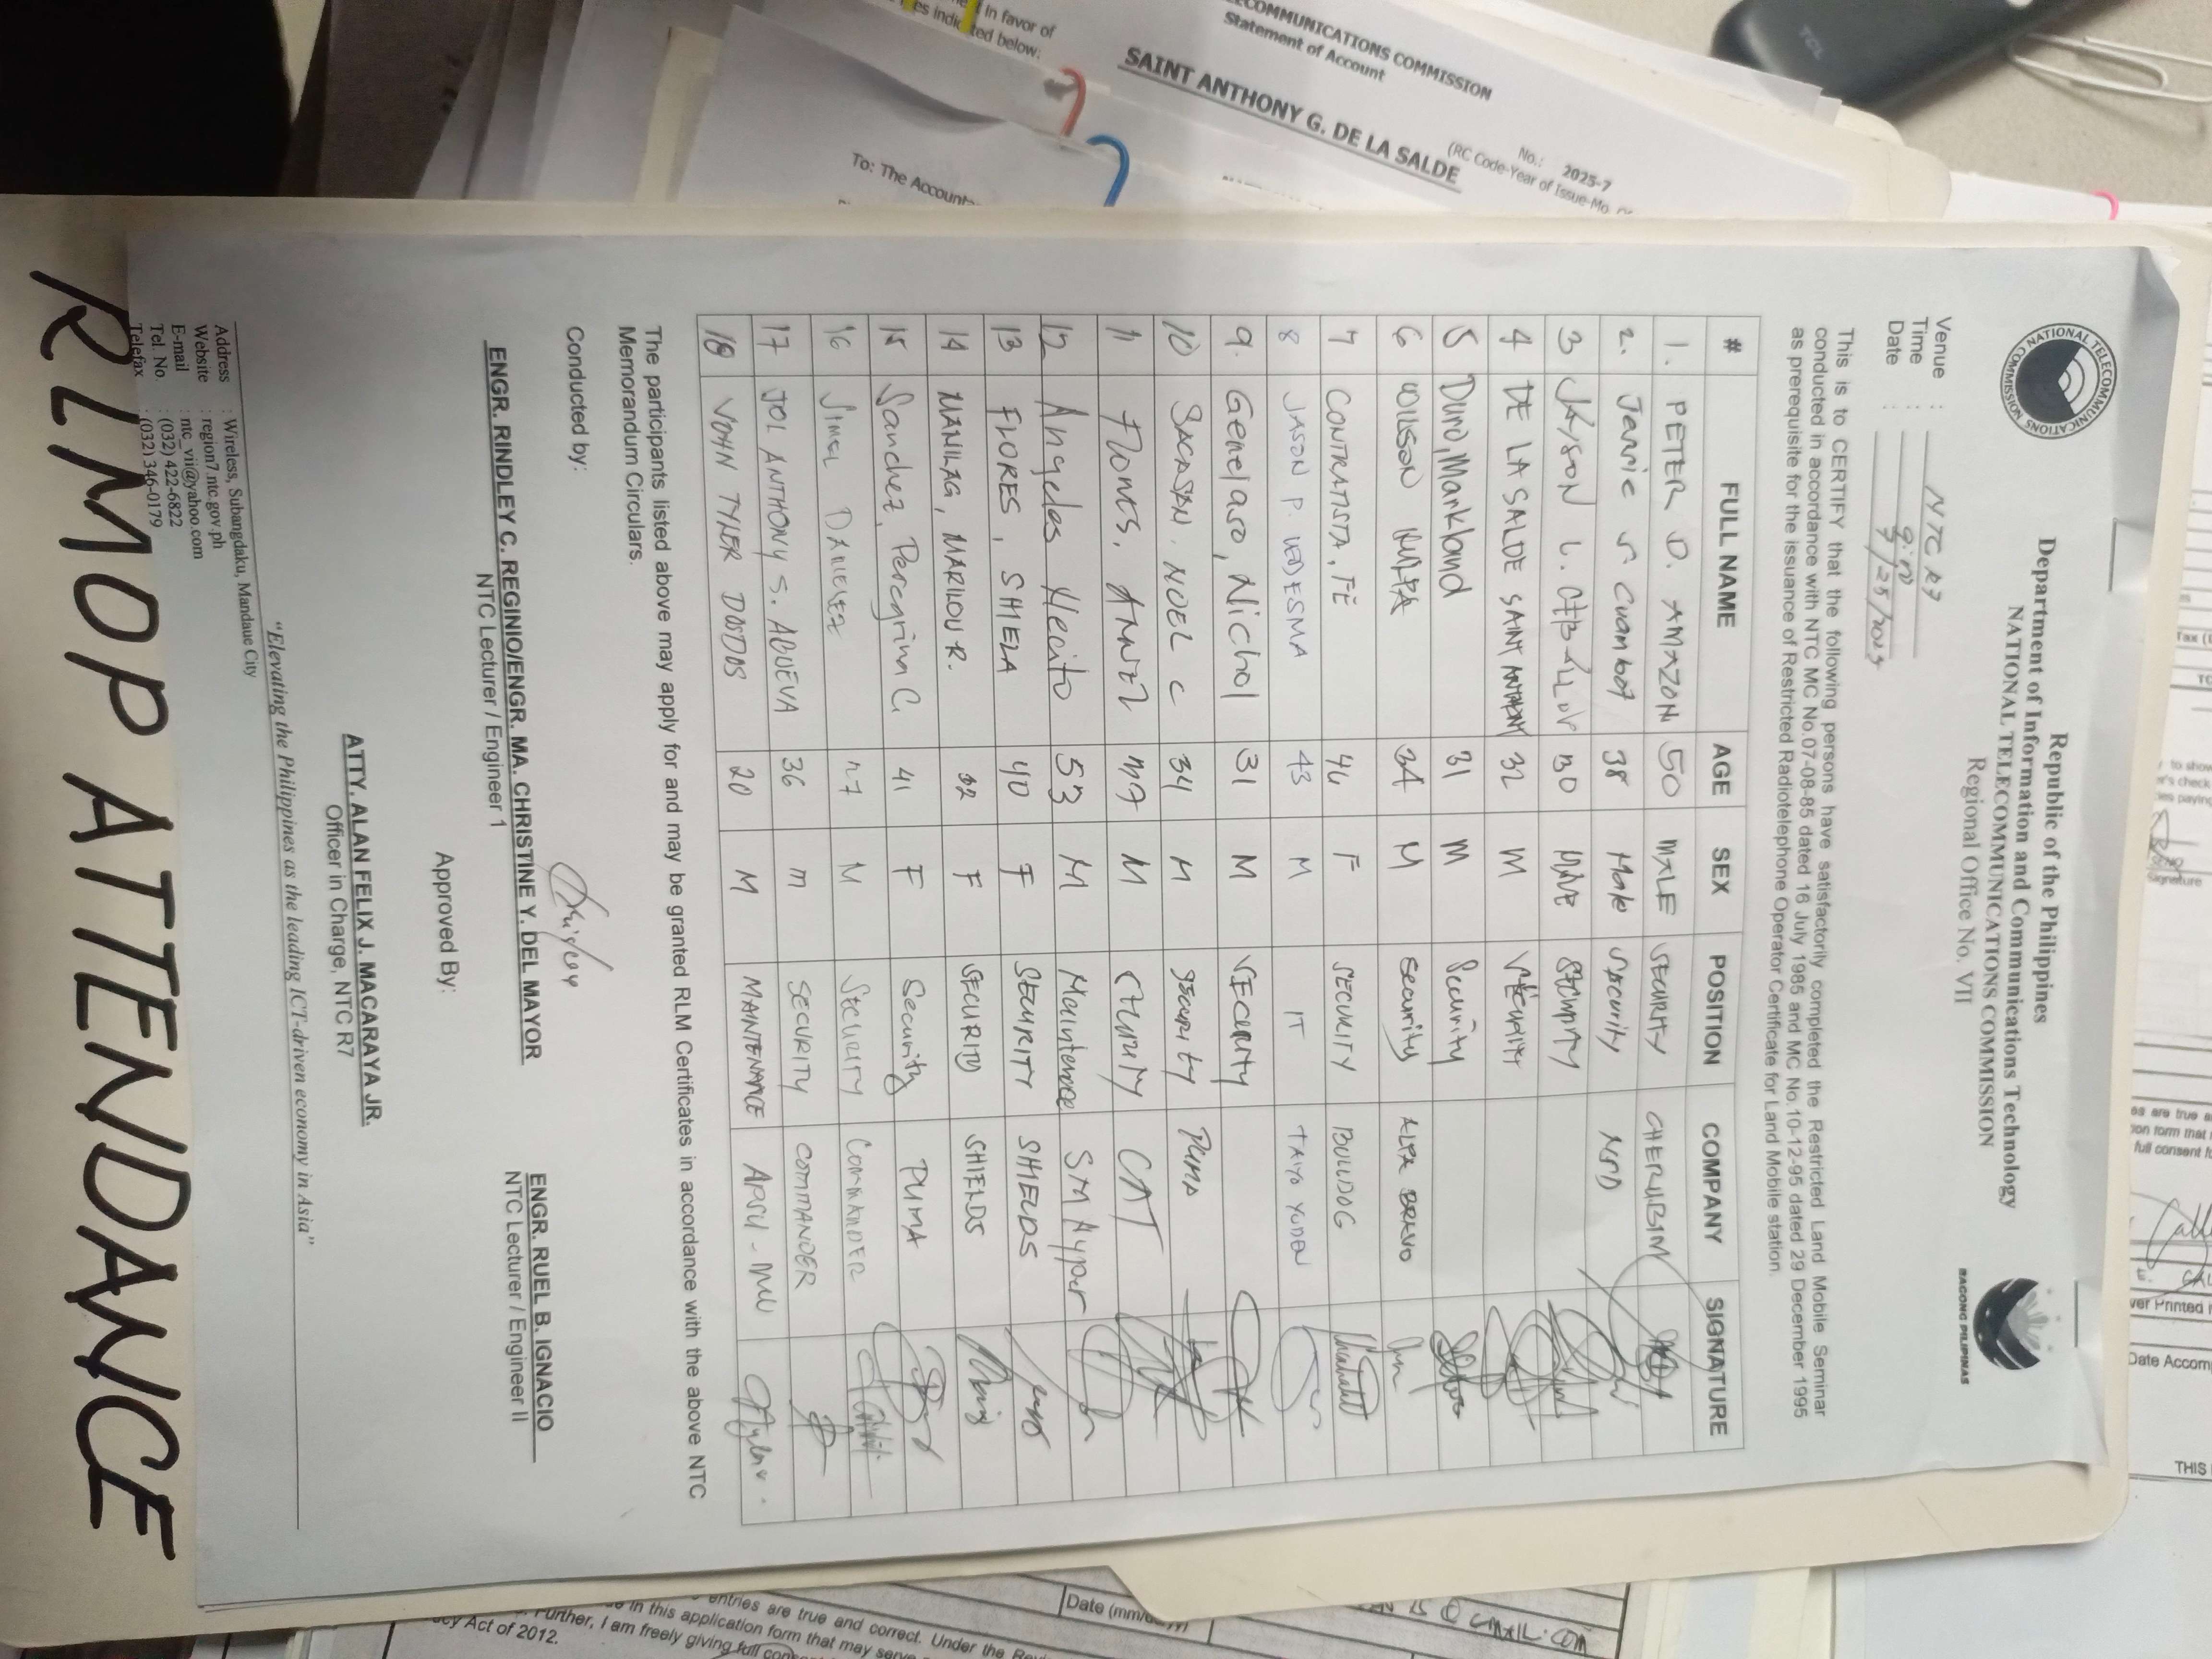 Republic of the Philippines
Department of Information and Communications Technology
NATIONAL TELECOMMUNICATIONS COMMISSION
Regional Office No. VII
NATIONAL TELECOMMUNICATIONS COMMISSION
BAGONG PILIPINAS
Venue : NTC R7
Time :
Date :
This is to CERTIFY that the following persons have satisfactorily completed the Restricted Land Mobile Seminar
conducted in accordance with NTC MC No.07-08-85 dated 16 July 1985 and MC No.10-12-95 dated 29 December 1995
as prerequisite for the issuance of Restricted Radiotelephone Operator Certificate for Land Mobile station.
# FULL NAME AGE SEX POSITION COMPANY SIGNATURE
1. PETER D. AMAZON 50 MALE SECURITY CHERUBIM
2. Jessie S Cuambot 38 Male Security NSD
3 JAYSON L. 30 MALE SECURITY
4 DE LA SALDE SAINT ANTHONY 32 M SECURITY
5 Duro, Markland 31 M Security
6 WILLSON 34 M Security ALFA BRAVO
7 CONTRATISTA, FE 46 F SECURITY BULLDOG
8 JASON P. LEDESMA 43 M IT TAIYO YUDEN
9. Genelaso, Nichol 31 M SECURITY
10 SACASAN, NOEL C 34 M SECURITY PUMA
11 M CAT
12 Angelas Hecito 53 M Maintenace SM
13 FLORES, SHIELA 40 F SECURITY SHIELDS
14 MANILAG, MARILOU R. 32 F SECURITY SHIELDS
15 Sanchez, Peregrina C. 41 F Security PUMA
16 27 M SECURITY COMMANDER
17 JOL ANTHONY S. ABUEVA 36 M SECURITY COMMANDER
18 JOHN TYLER DOSDOS 20 M MAINTENANCE
The participants listed above may apply for and may be granted RLM Certificates in accordance with the above NTC
Memorandum Circulars.
Conducted by:
ENGR. RINDLEY C. REGINIO/ENGR. MA. CHRISTINE Y. DEL MAYOR
NTC Lecturer / Engineer 1
ENGR. RUEL B. IGNACIO
NTC Lecturer / Engineer II
Approved By:
ATTY. ALAN FELIX J. MACARAYA JR.
Officer in Charge, NTC R7
"Elevating the Philippines as the leading ICT-driven economy in Asia"
Address : Wireless, Subangdaku, Mandaue City
Website : region7.ntc.gov.ph
E-mail : ntc_vii@yahoo.com
Tel. No. : (032) 422-6822
Telefax : (032) 346-0179
RLMOP ATTENDANCE
COMMUNICATIONS COMMISSION
Statement of Account
SAINT ANTHONY G. DE LA SALDE
No.: 2025-7
in favor of
ted below:
TCL
Signature
Date Accom
THIS
Date (mm/
entries are true and correct. Under the
in this application form that may serve
Further, I am freely giving full
cy Act of 2012.